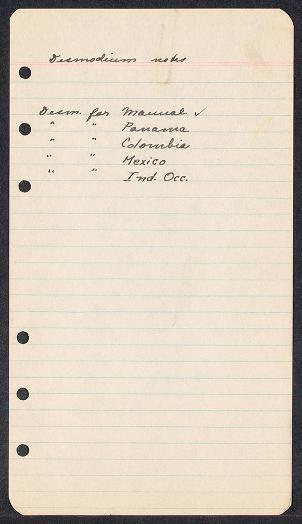 Desmodium notes
Desm. for Manual ✓
" " Panama
" " Colombia
" " Mexico
" " Ind. Occ.